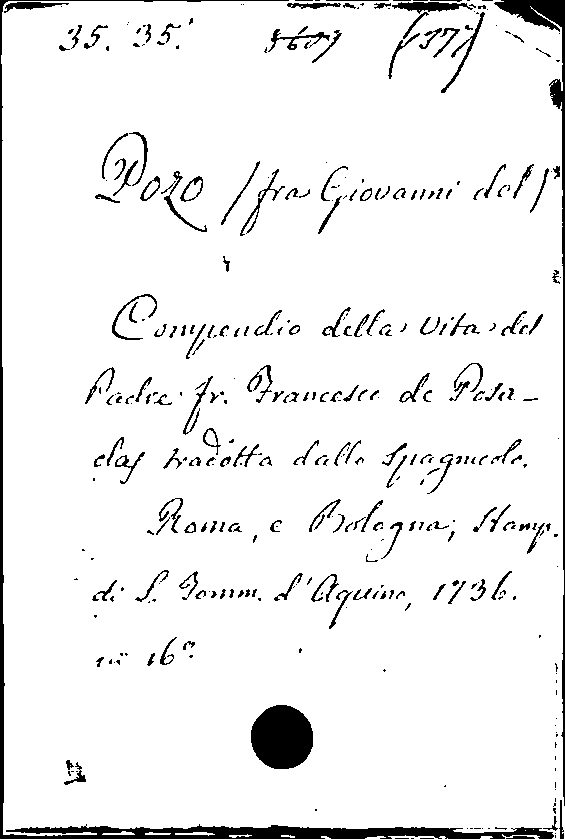 35. 35. 3607 (137)
Pozo /fra Giovanni del/
Compendio della Vita del
Padre fr. Francesco de Posa-
das tradotta dallo Spagnuolo.
Roma, e Bologna, Stamp.
di S. Tomm. d'Aquino, 1736.
in 16°.